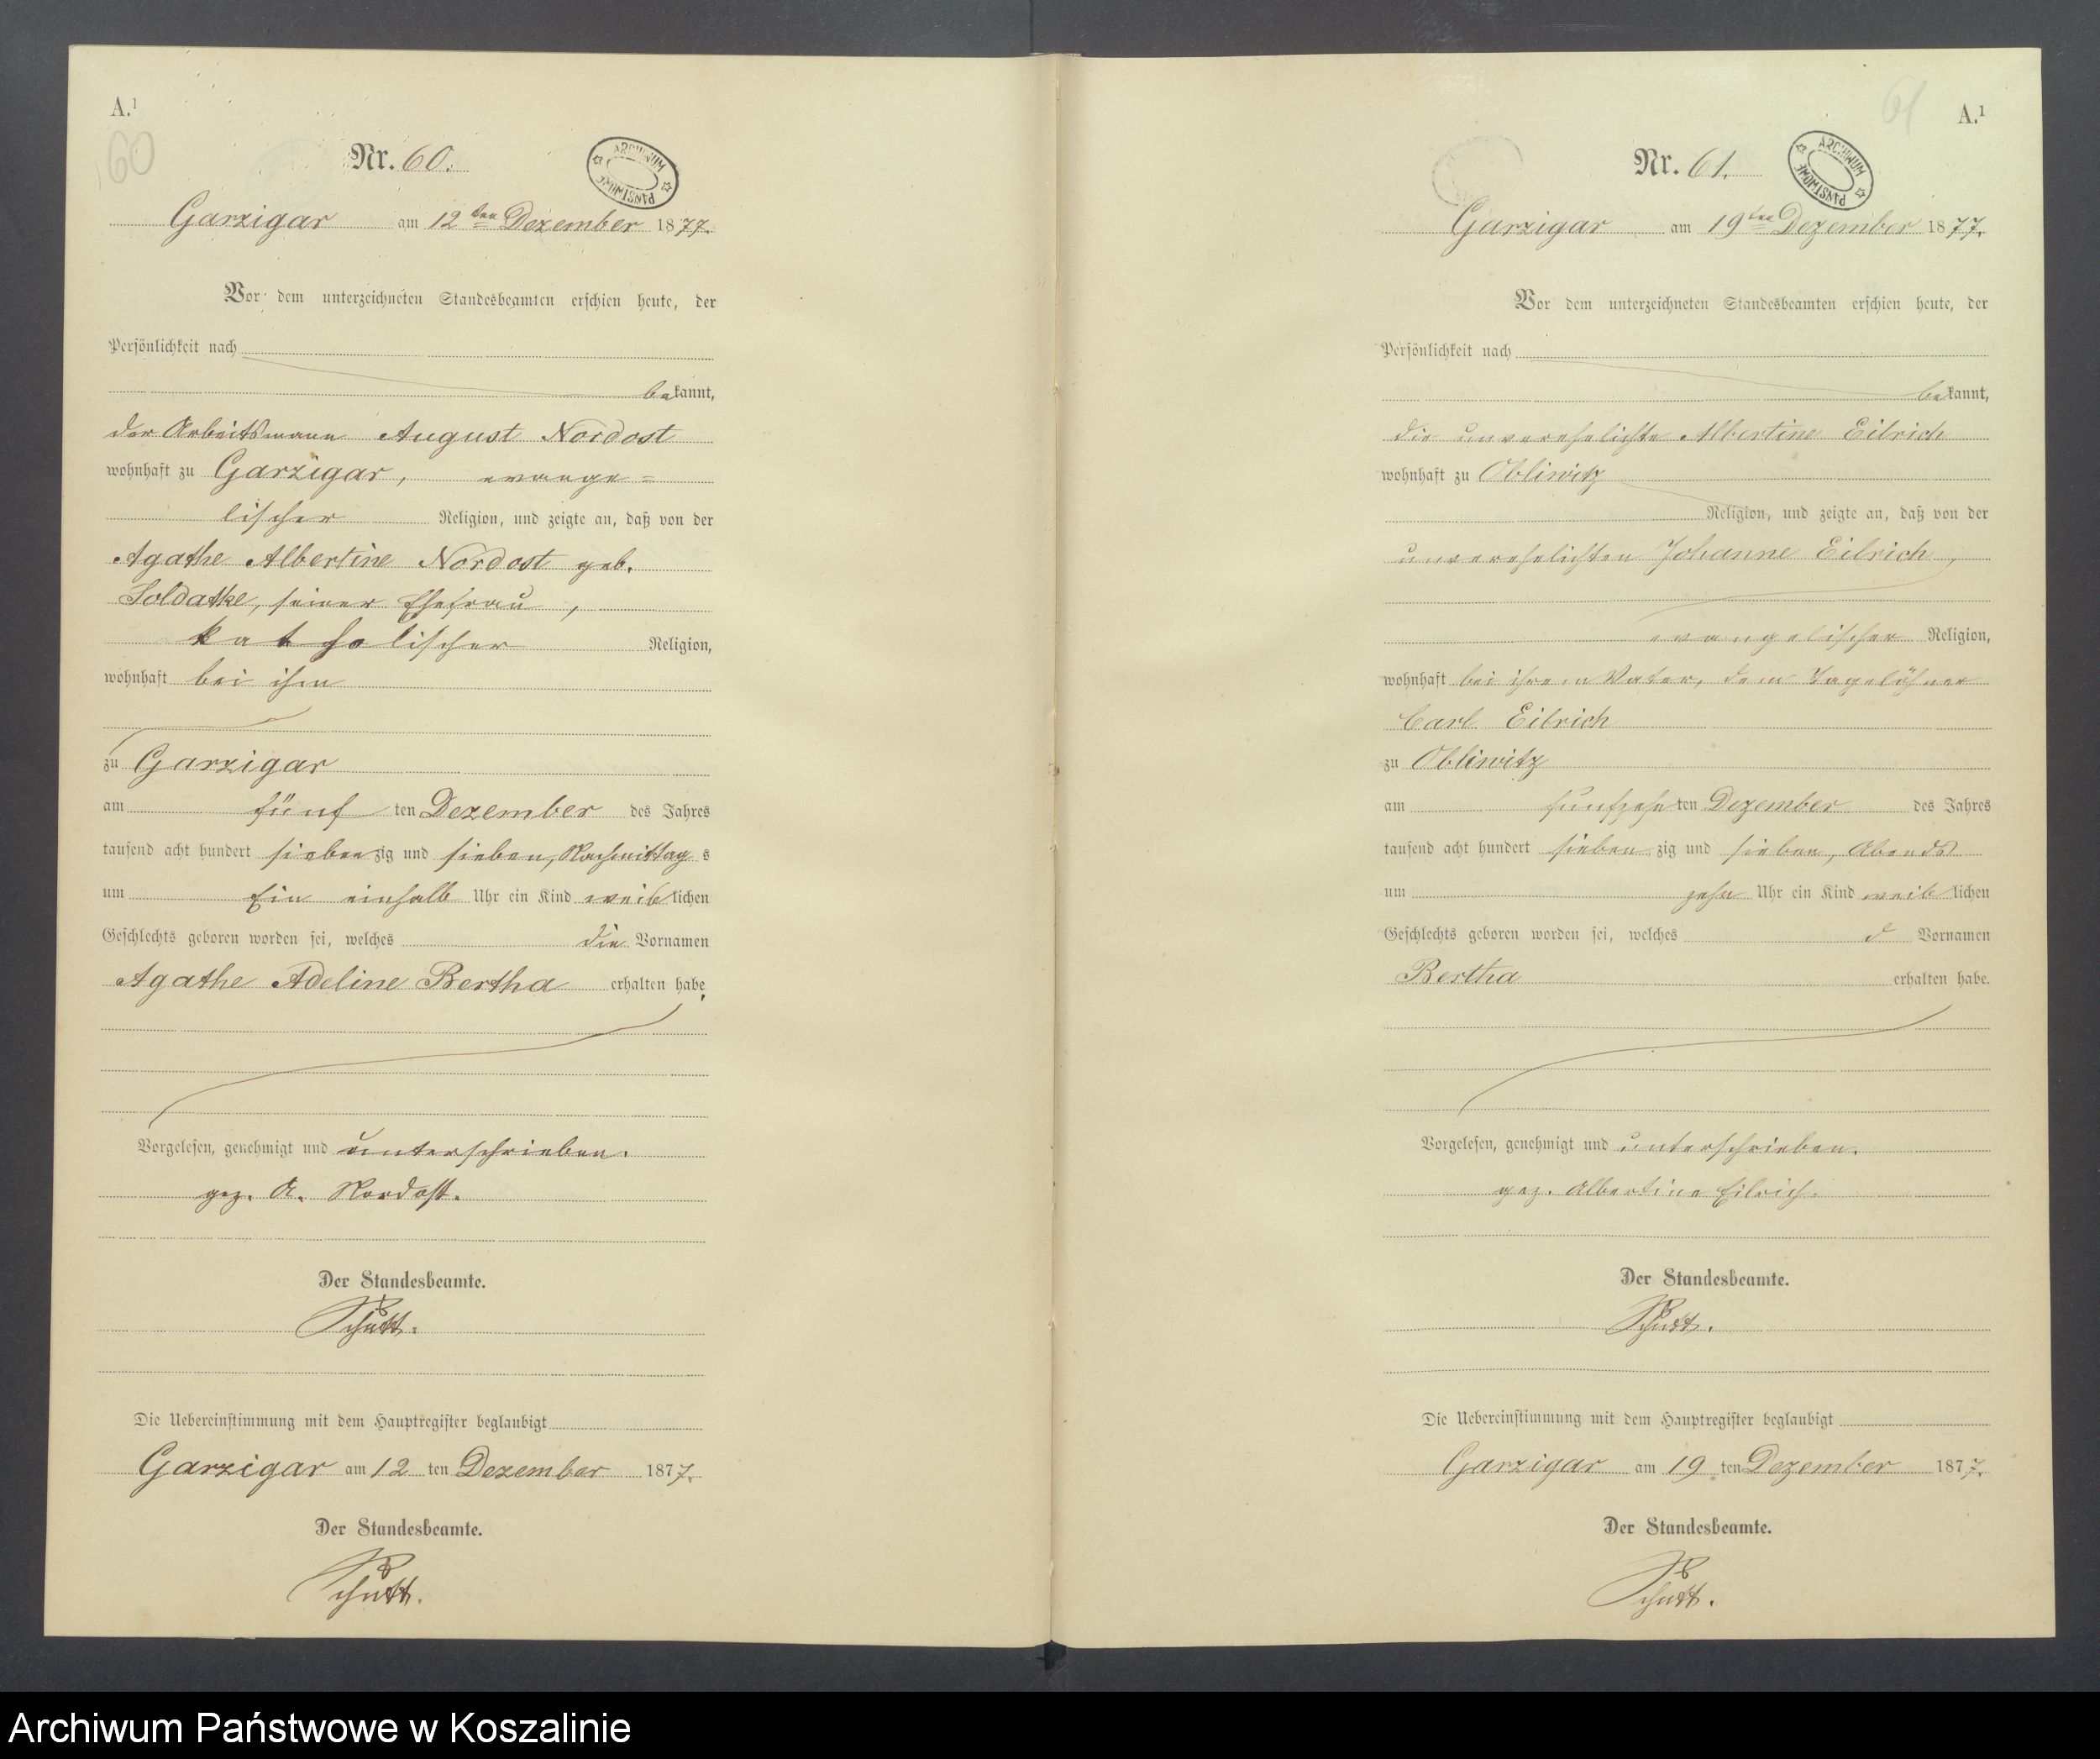 A.¹
60
Nr. 60.
ARCHIWUM PAŃSTWOWE
Garzigar am 12ten Dezember 1877.
Vor dem unterzeichneten Standesbeamten erschien heute, der
Persönlichkeit nach
bekannt,
der Arbeitsmann August Nordost
wohnhaft zu Garzigar, evange=
lischer Religion, und zeigte an, daß von der
Agathe Albertine Nordost geb.
Soldatke, seiner Ehefrau,
katholischer Religion,
wohnhaft bei ihm
zu Garzigar
am fünften Dezember des Jahres
tausend acht hundert siebenzig und sieben, Nachmittags
um Ein einhalb Uhr ein Kind weiblichen
Geschlechts geboren worden sei, welches die Vornamen
Agathe Adeline Bertha erhalten habe.
Vorgelesen, genehmigt und unterschrieben.
gez. A. Nordost.
Der Standesbeamte.
Schutt.
Die Uebereinstimmung mit dem Hauptregister beglaubigt
Garzigar am 12ten Dezember 1877.
Der Standesbeamte.
Schutt.
61
A.¹
Nr. 61.
ARCHIWUM PAŃSTWOWE
Garzigar am 19ten Dezember 1877.
Vor dem unterzeichneten Standesbeamten erschien heute, der
Persönlichkeit nach
bekannt,
die unverehelichte Albertine Eilrich
wohnhaft zu Obliwitz
Religion, und zeigte an, daß von der
unverehelichten Johanne Eilrich,
evangelischer Religion,
wohnhaft bei ihrem Vater, dem Tagelöhner
Carl Eilrich
zu Obliwitz
am funfzehnten Dezember des Jahres
tausend acht hundert siebenzig und sieben, Abends
um zehn Uhr ein Kind weiblichen
Geschlechts geboren worden sei, welches d Vornamen
Bertha erhalten habe.
Vorgelesen, genehmigt und unterschrieben.
gez. Albertine Eilrich.
Der Standesbeamte.
Schutt.
Die Uebereinstimmung mit dem Hauptregister beglaubigt
Garzigar am 19ten Dezember 1877.
Der Standesbeamte.
Schutt.
Archiwum Państwowe w Koszalinie